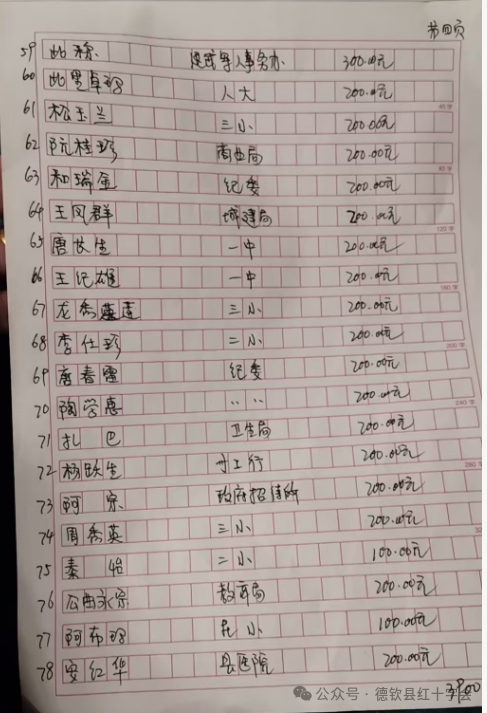 第四页
59 此称 人事劳办 300.00元
60 此里卓玛 人大 200.00元
61 松玉兰 三小 200.00元
62 阮桂珍 商业局 200.00元
63 和瑞金 纪委 200.00元
64 王凤群 城建局 200.00元
65 唐长生 一中 200.00元
66 王纪雄 一中 200.00元
67 龙秀莲 三小 200.00元
68 李仕珍 二小 200.00元
69 唐春霞 纪委 200.00元
70 陶学惠 〃 〃 200.00元
71 扎巴 卫生局 200.00元
72 杨跃生 工行 200.00元
73 阿宗 政府招待所 200.00元
74 周秀英 三小 200.00元
75 秦怡 二小 100.00元
76 瓜西永宗 教育局 200.00元
77 阿布玛 小 100.00元
78 安红华 县医院 200.00元
3900
公众号·德钦县红十字会